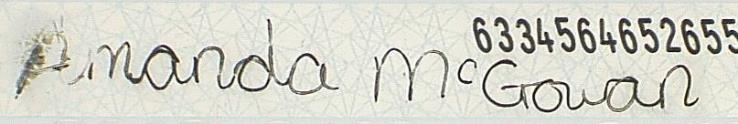 6334564652655
Amanda McGowan